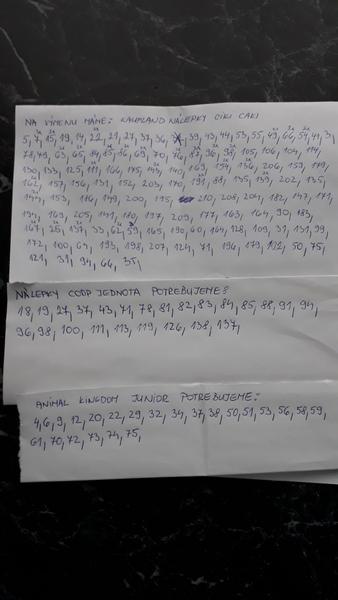 NA VÝMENU MÁME: KAUFLAND NÁLEPKY CIKI CAKI
5, 7, 15, 19, 14, 22, 21, 27, 37, 36, 39, 43, 44, 53, 55, 49, 66, 54, 41, 3,
78, 79, 63, 65, 84, 15, 16, 69, 70, 76, 87, 96, 97, 105, 106, 104, 114,
130, 133, 125, 111, 166, 175, 143, 140, 169, 154, 136, 206, 159, 179,
162, 157, 156, 131, 152, 203, 170, 191, 88, 135, 139, 202, 135,
144, 153, 116, 149, 200, 195, 210, 208, 204, 182, 147, 171,
134, 169, 205, 141, 180, 197, 209, 177, 163, 164, 90, 183,
167, 26, 137, 33, 62, 59, 165, 190, 60, 164, 128, 109, 31, 131, 99,
172, 100, 64, 193, 198, 207, 124, 71, 196, 179, 192, 50, 75,
121, 31, 94, 66, 35,
NÁLEPKY COOP JEDNOTA POTREBUJEME:
18, 19, 27, 37, 43, 71, 78, 81, 82, 83, 84, 85, 88, 91, 94,
96, 98, 100, 111, 113, 119, 126, 138, 137,
ANIMAL KINGDOM JUNIOR POTREBUJEME:
4, 6, 9, 12, 20, 22, 29, 32, 34, 37, 38, 50, 51, 53, 56, 58, 59,
61, 70, 72, 73, 74, 75,